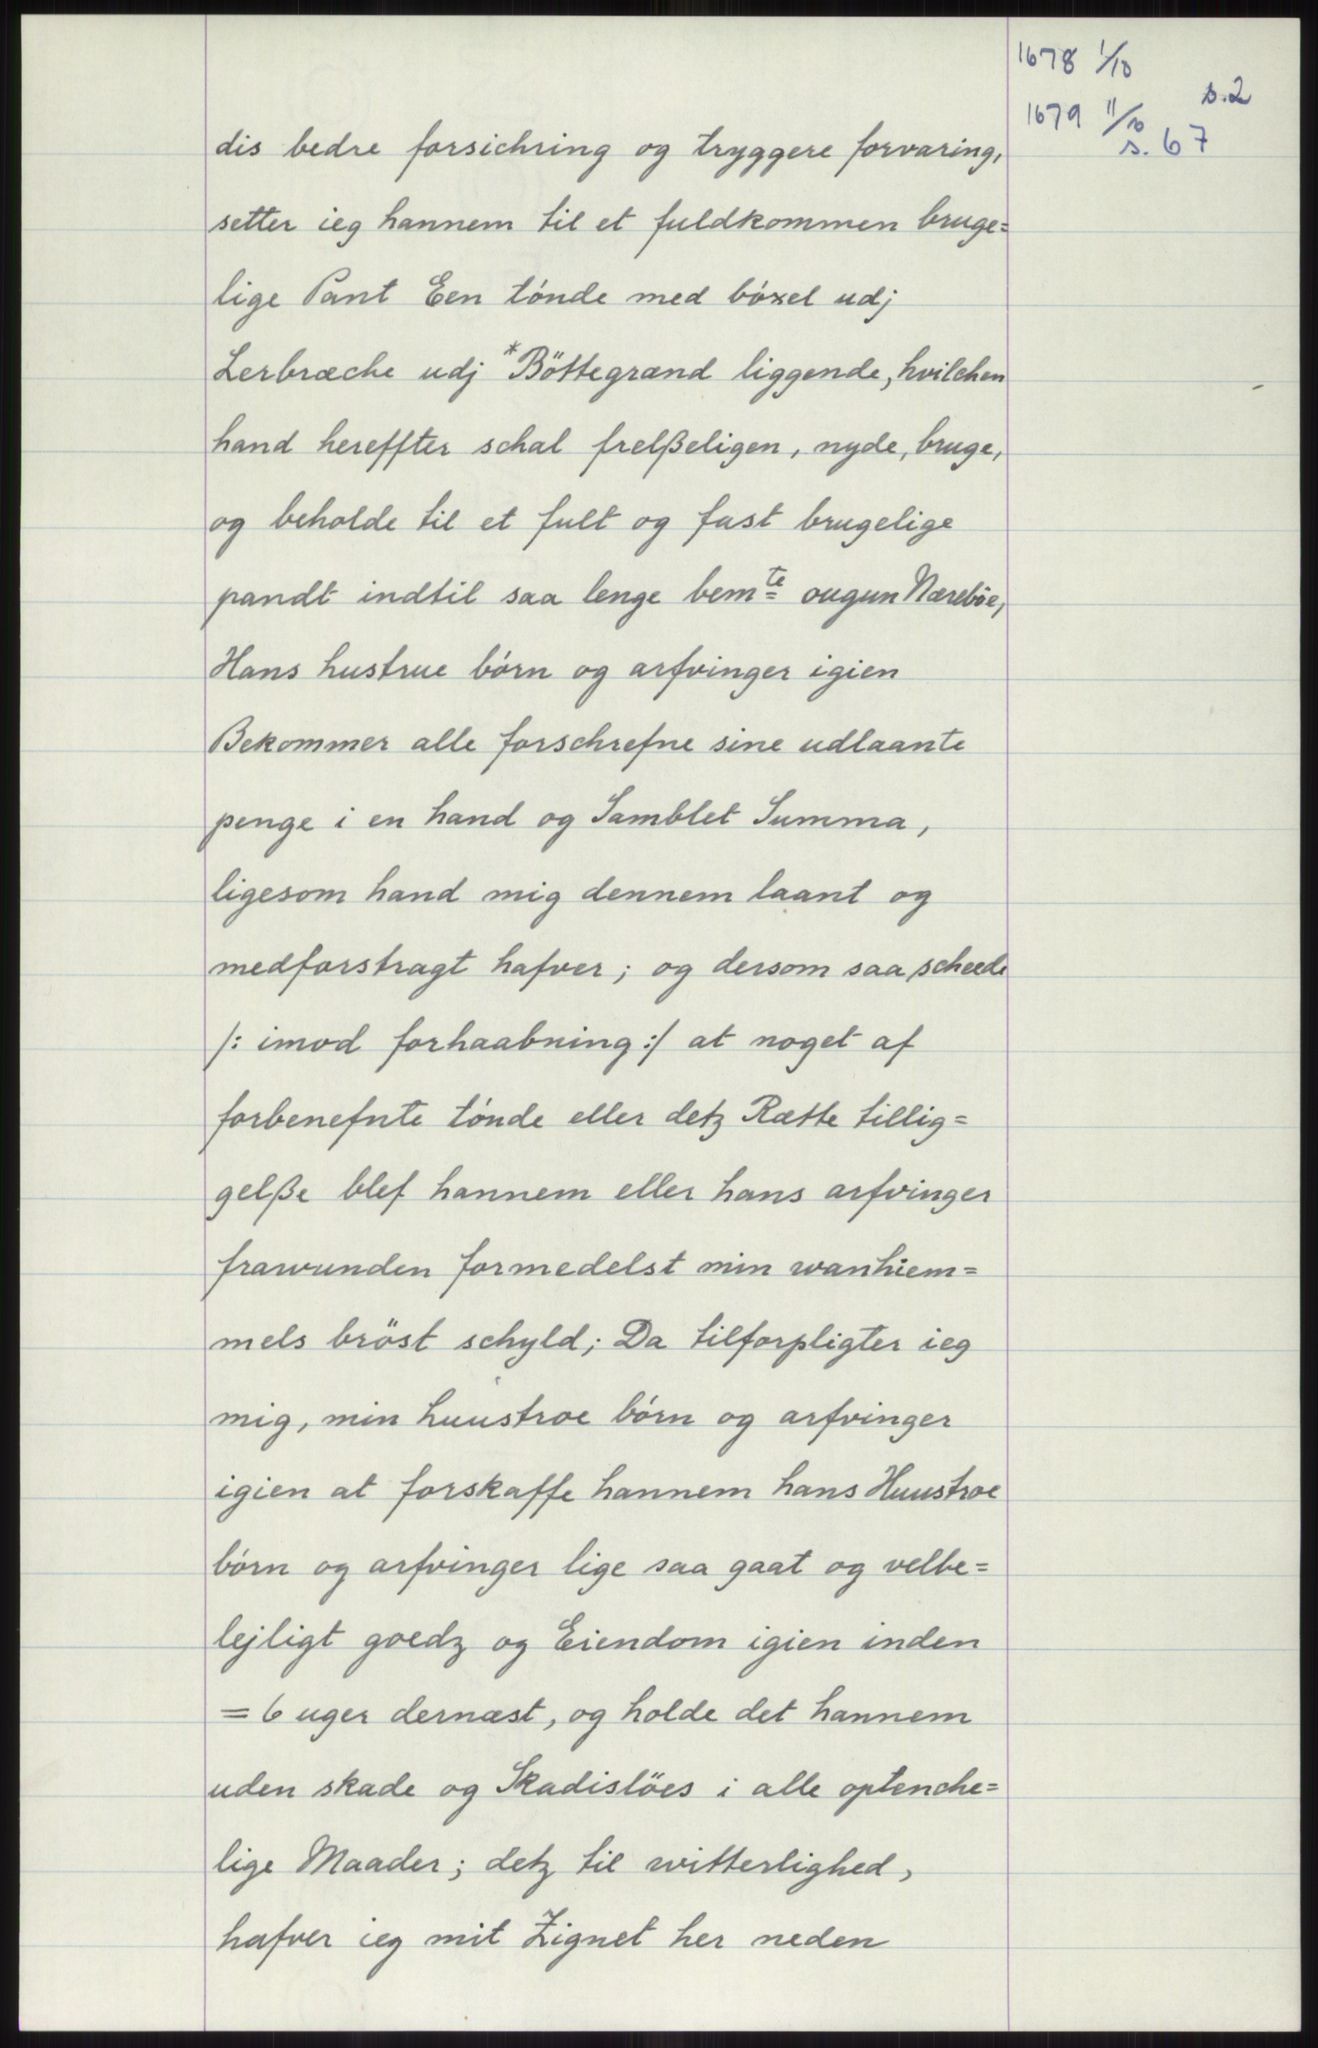 1678 1/10
s.2
1679 11/10
s. 67
dis bedre forsichring og tryggere forvaring,
setter ieg hannem til et fuldkommen bruge=
lige Pant Een tónde med bóxel udj
Lerbræche udj *Böttegrænd liggende, hvilchen
hand hereffter schal frelßeligen, nyde, bruge,
og beholde til et fult og fast brugelige
pandt indtil saa lenge bemte ougun Næreböe,
Hans hustrue börn og arfvinger igien
Bekommer alle forschrefne sine udlaante
penge i en hand og Samblet Summa,
ligesom hand mig dennem laant og
medforstragt hafver; og dersom saa scheede
/: imod forhaabning :/ at noget af
forbenefnte tónde eller detz Rætte tillig=
gelße blef hannem eller hans arfvinger
frawunden formedelst min wanhiem=
mels bröst schyld; Da tilforpligter ieg
mig, min huustroe bórn og arfvinger
igien at forskaffe hannem hans Huustroe
bórn og arfvinger lige saa gaat og velbe=
lejligt goedz og Eiendom igien inden
= 6 uger dernæst, og holde det hannem
uden skade og Skadislöes i alle optenche=
lige Maader; detz til witterlighed,
hafver ieg mit Zignet her neden